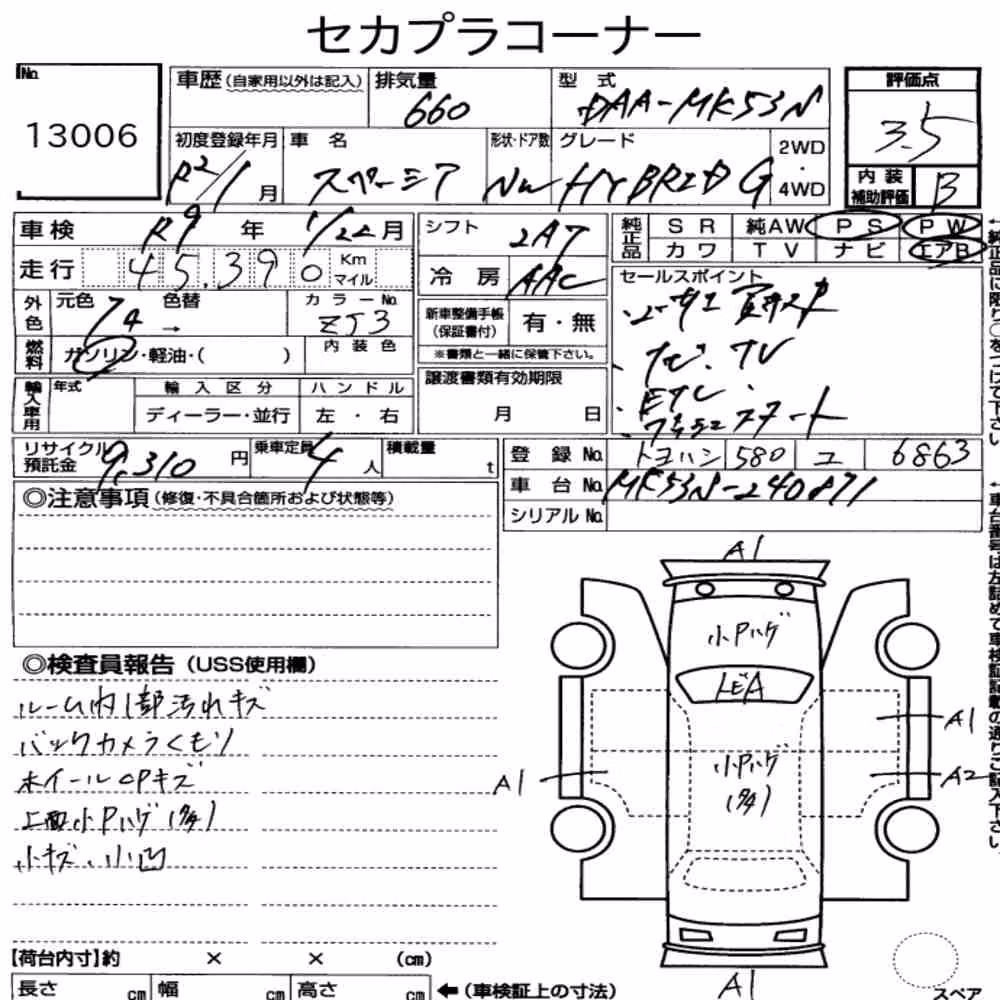 セカプラコーナー
No. 13006
車歴(自家用以外は記入) 排気量 660 型式 DAA-MK53N 評価点 3.5
初度登録年月 R2/1月 車名 スペーシア 形状・ドア数 グレード HYBRID G 2WD・4WD
内装補助評価 B
車検 R9年 月 シフト 冷房 AAC
純正品 SR 純AW PS PW
カワ TV ナビ エアB
走行 45,390 Km マイル
セールスポイント
外色 元色 色替 → カラーNo. ZJ3
新車整備手帳(保証書付) 有・無
※書類と一緒に保管下さい。
燃料 ガソリン・軽油・( ) 内装色
ナビ、TV
ETC
輸入車用 年式 輸入区分 ハンドル
ディーラー・並行 左・右
譲渡書類有効期限
月 日
リサイクル預託金 9,310円 乗車定員 4人 積載量 t
登録No. トヨハシ 580 ユ 6863
車台No. MK53N-240871
シリアルNo.
←純正品に限り○をつけて下さい
←車台番号は左詰めで車検証記載の通りご記入下さい。
◎注意事項(修復・不具合箇所および状態等)
◎検査員報告(USS使用欄)
ルーム内1部汚れキズ
バックカメラくもり
ホイールCPキズ
上面小Pハゲ
小キズ、小凹
A1
小Pハゲ
A1
小Pハゲ
A2
A1
A1
【荷台内寸】約 × × (cm)
長さ cm 幅 cm 高さ cm ←(車検証上の寸法)
スペア